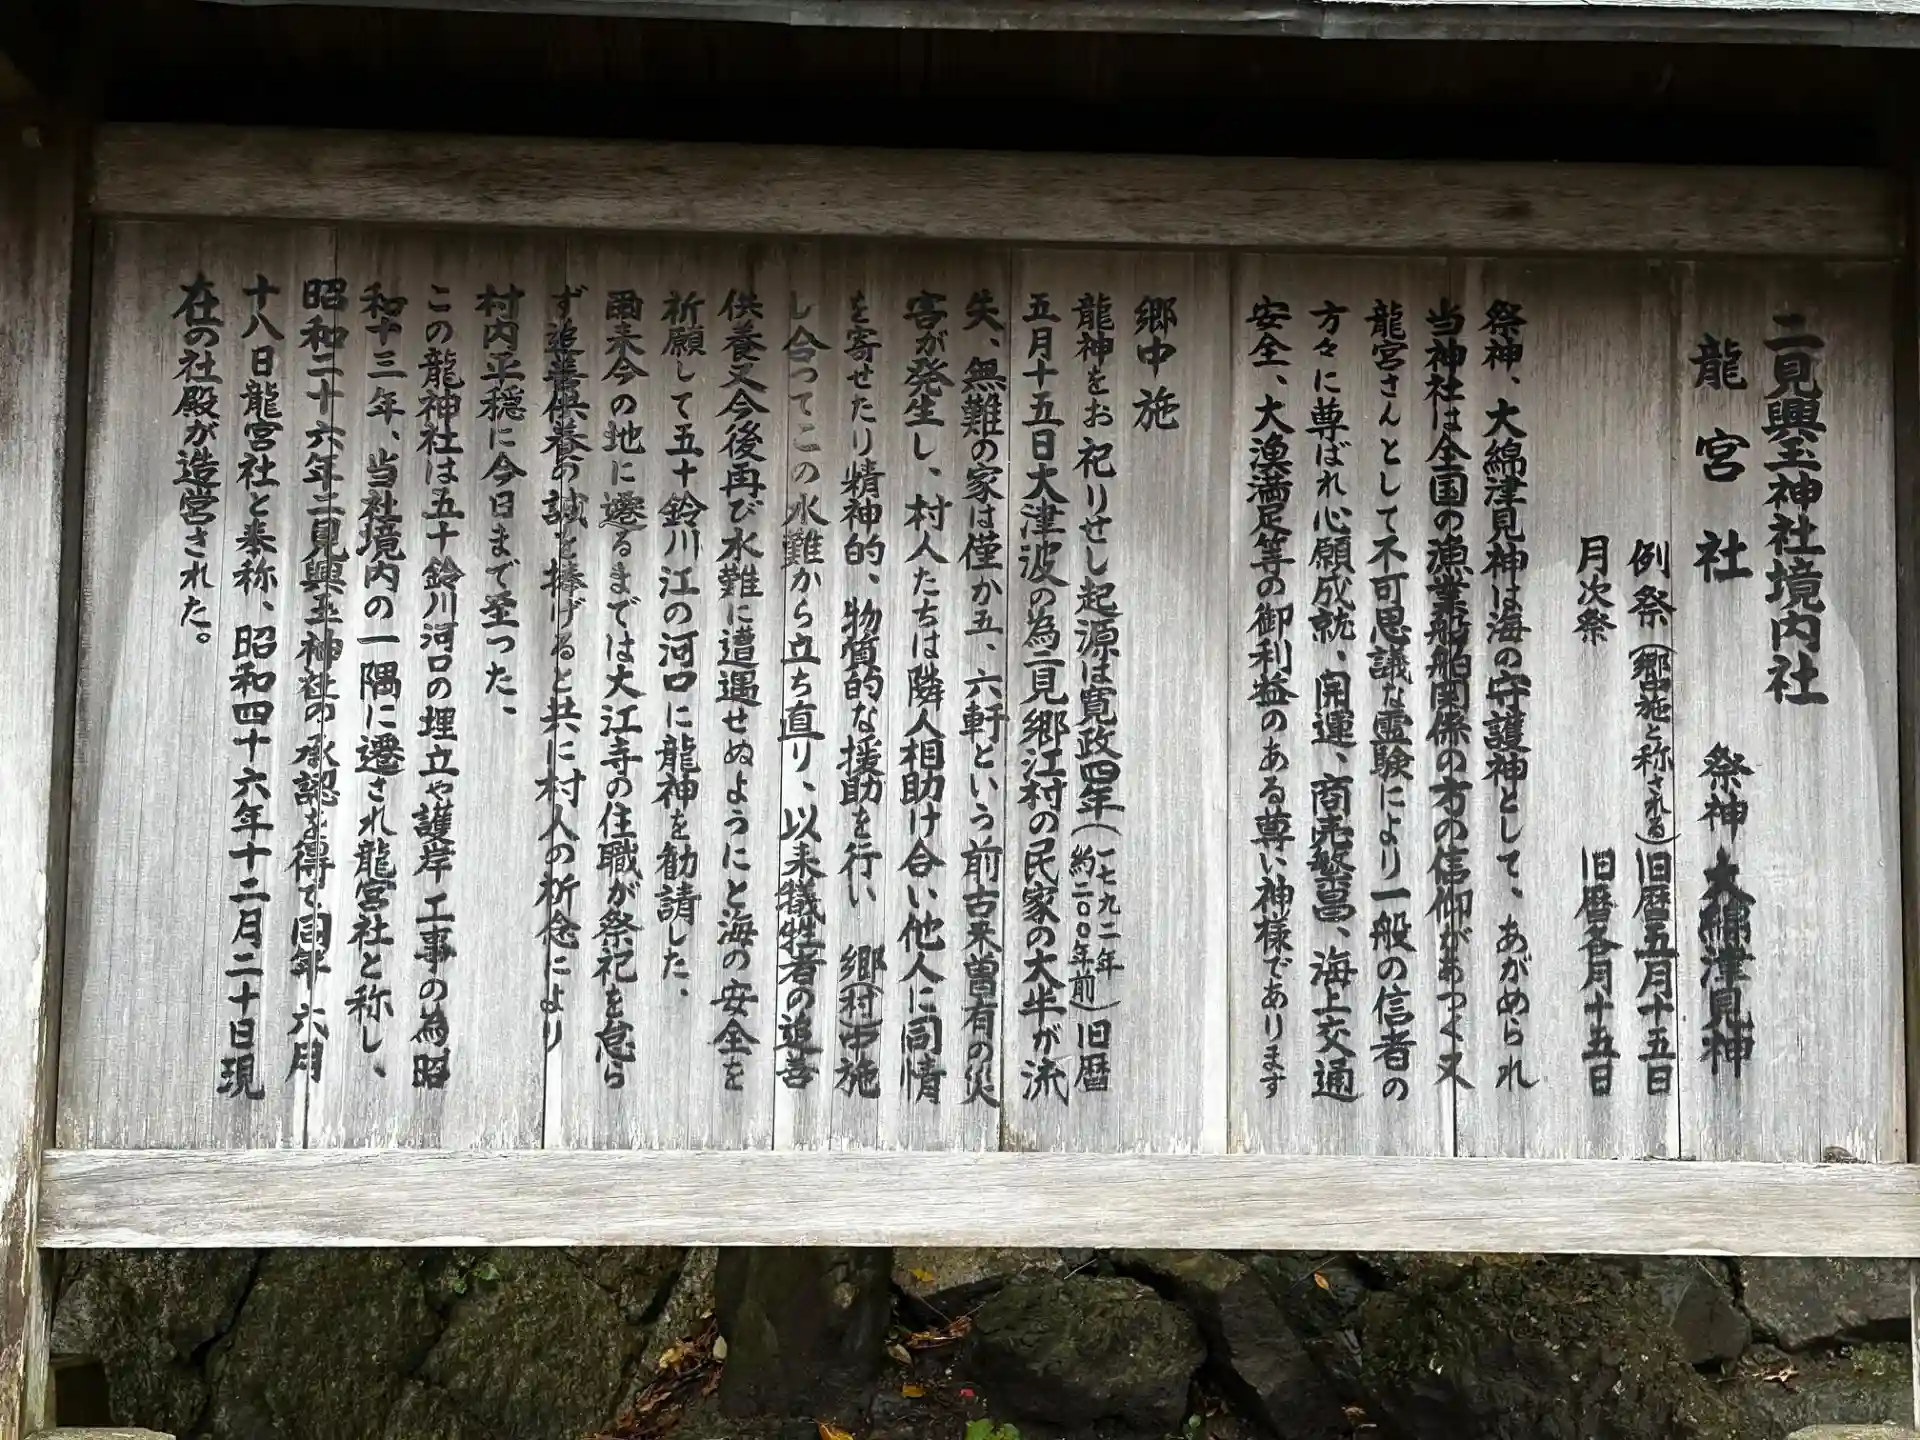 二見興玉神社境内社
龍宮社 祭神 大綿津見神
例祭(郷中施と称される)旧暦五月十五日
月次祭 旧暦各月十五日
祭神、大綿津見神は海の守護神として、あがめられ
当神社は全国の漁業船舶関係の方の信仰があつく又
龍宮さんとして不可思議な霊験により一般の信者の
方々に尊ばれ心願成就、開運、商売繁昌、海上交通
安全、大漁満足等の御利益のある尊い神様であります
郷中施
龍神をお祀りせし起源は寛政四年(一七九二年 約二〇〇年前)旧暦
五月十五日大津波の為二見郷江村の民家の大半が流
失、無難の家は僅か五、六軒という前古未曽有の災
害が発生し、村人たちは隣人相助け合い他人に同情
を寄せたり精神的、物質的な援助を行い 郷(村)中施
し合ってこの水難から立ち直り、以来犠牲者の追善
供養又今後再び水難に遭遇せぬようにと海の安全を
祈願して五十鈴川江の河口に龍神を勧請した、
爾来今の地に遷るまでは大江寺の住職が祭祀を怠ら
ず追善供養の誠を捧げると共に村人の祈念により
村内平穏に今日まで至った、
この龍神社は五十鈴川河口の埋立や護岸工事の為昭
和十三年、当社境内の一隅に遷され龍宮社と称し、
昭和二十六年二見興玉神社の承認を得て同年 六月
十八日龍宮社と奉称、昭和四十六年十二月二十日現
在の社殿が造営された。